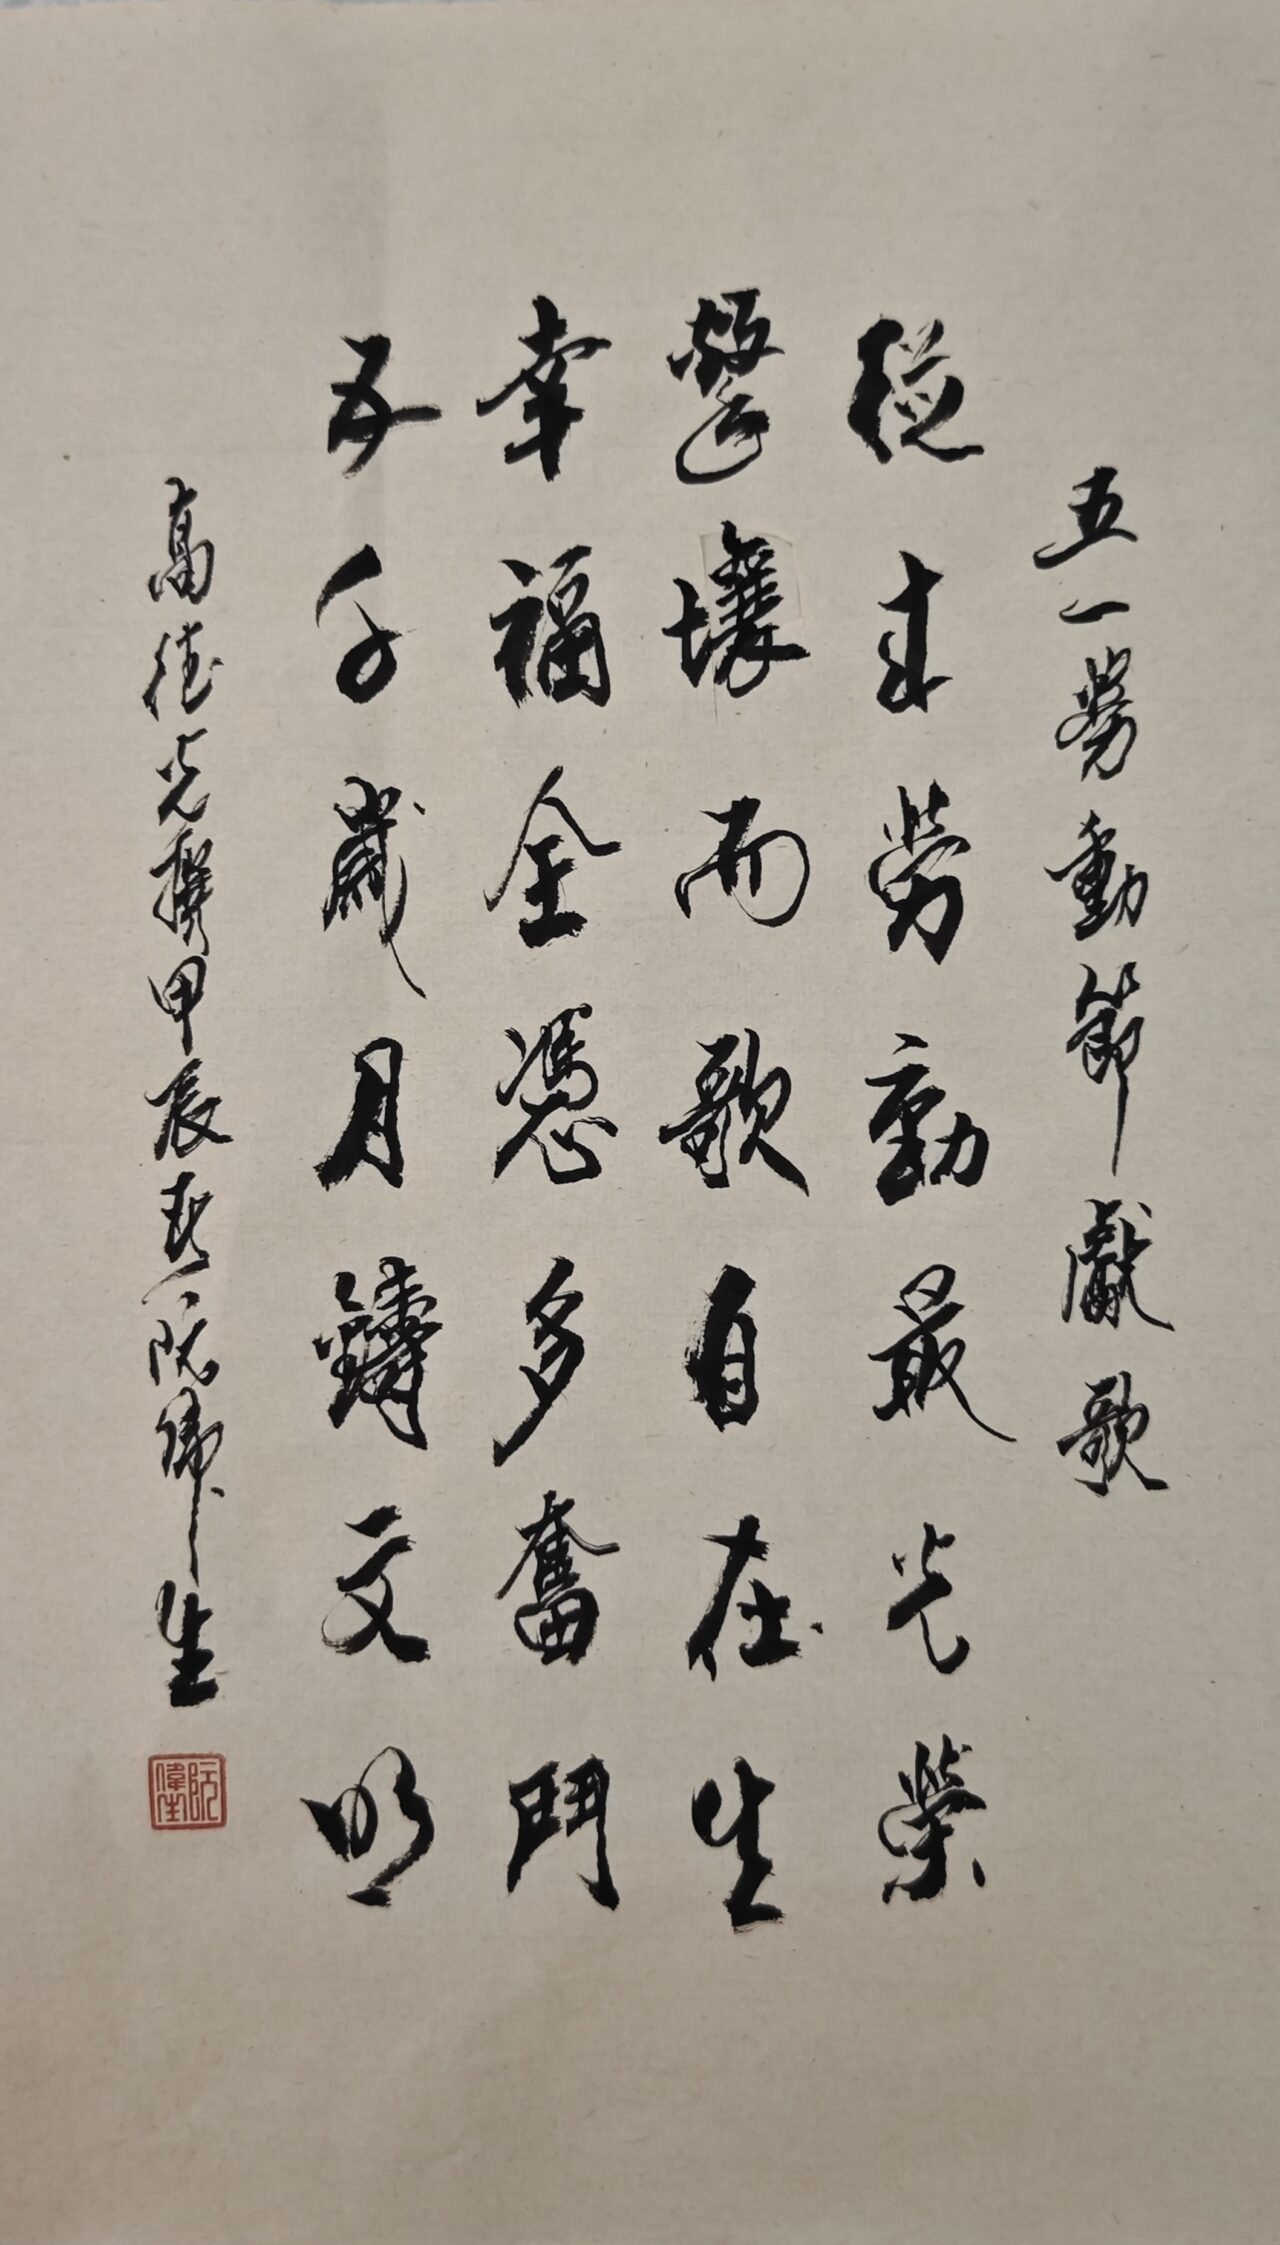 五一勞動節獻歌
從来勞動最光榮
擊壤而歌自在生
幸福全憑多奮鬥
五千歲月鑄文明
高德光撰甲辰春阮偉生
阮偉生